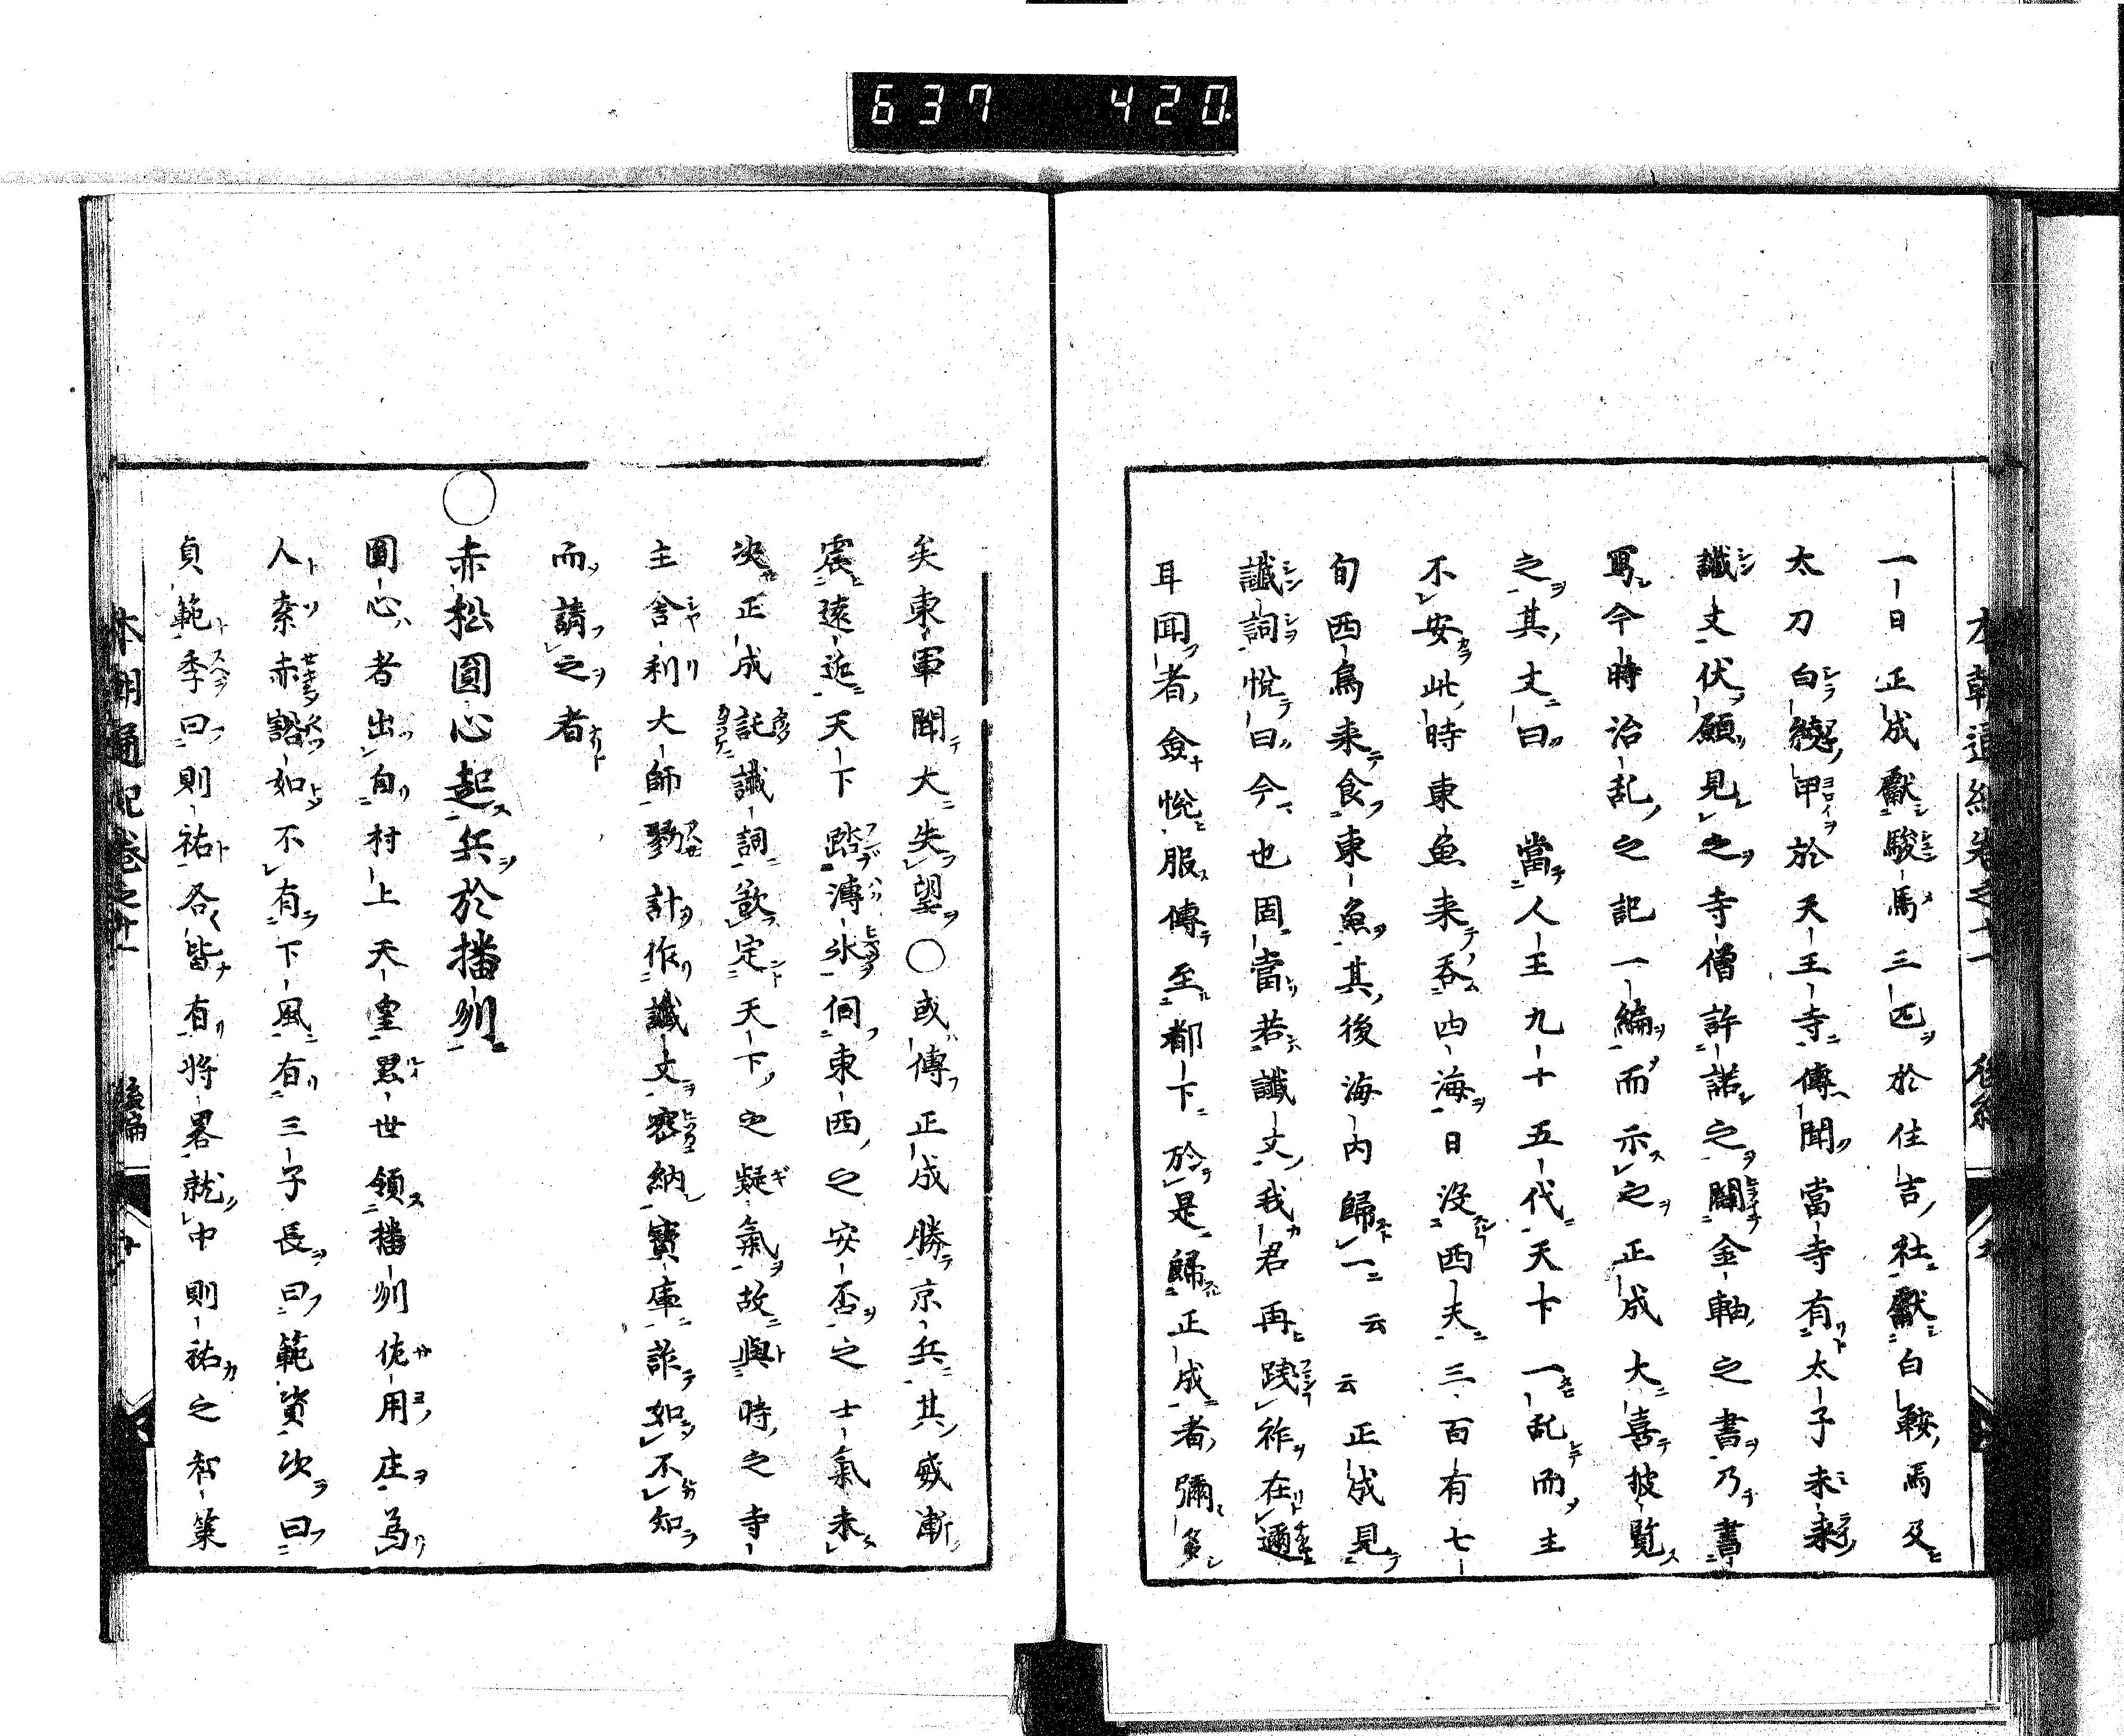 637 420
一日正成獻駿馬三匹於住吉社獻白鞍馬及
太刀白繞甲於天王寺傳聞當寺有太子未來
讖文伏願見之寺僧許諾之闢金軸之書乃書
寫今時治乱之記一編而示之正成大喜披覽
之其文曰 當人王九十五代天下一乱而主
不安此時東魚来吞四海日沒西天三百有七
旬西鳥来食東魚其後海内歸一云云正成見
讖詞悅曰今也固當若讖文我君再踐祚在邇
耳聞者僉悅服傳至都下於是歸正成者彌多
矣東軍聞大失望〇或傳正成勝京兵其威漸
震遠近天下踏薄氷伺東西之安否之士氣未
决正成託讖詞欲定天下之疑氣故與時之寺
主舍利大師勠計作讖文密納寶庫詐如不知
而請之者
〇赤松圓心起兵於播州
圓心者出自村上天皇累世領播州佐用庄為
人索赤谿如不有下風有三子長曰範資次曰
貞範季曰則祐各皆有將畧就中則祐之智策
本朝通紀卷之廿一 後編